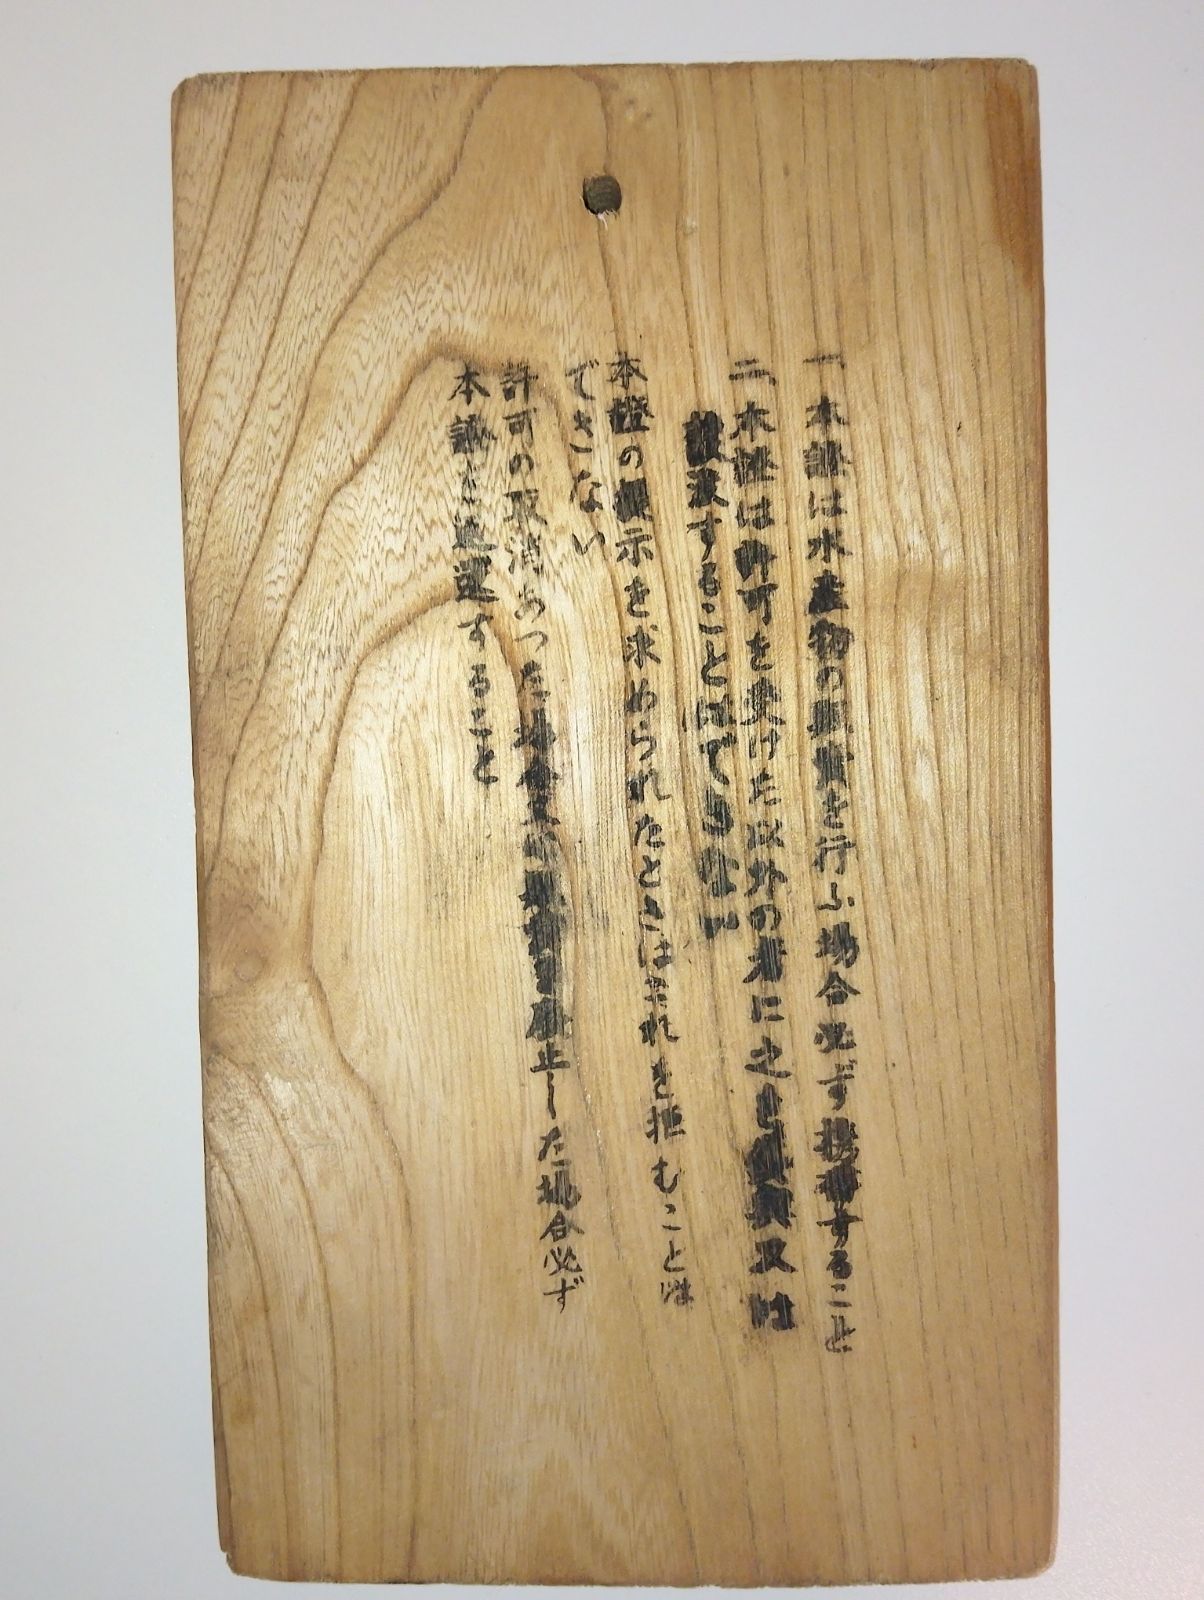 一、本證は水産物の買賣を行ふ場合必ず携帯すること
二、本證は許可を受けた以外の者に之を貸與又は
譲渡することはできない
本證の提示を求められたときはこれを拒むことは
できない
許可の取消あった場合又は買賣を廢止した場合必ず
本證を返還すること